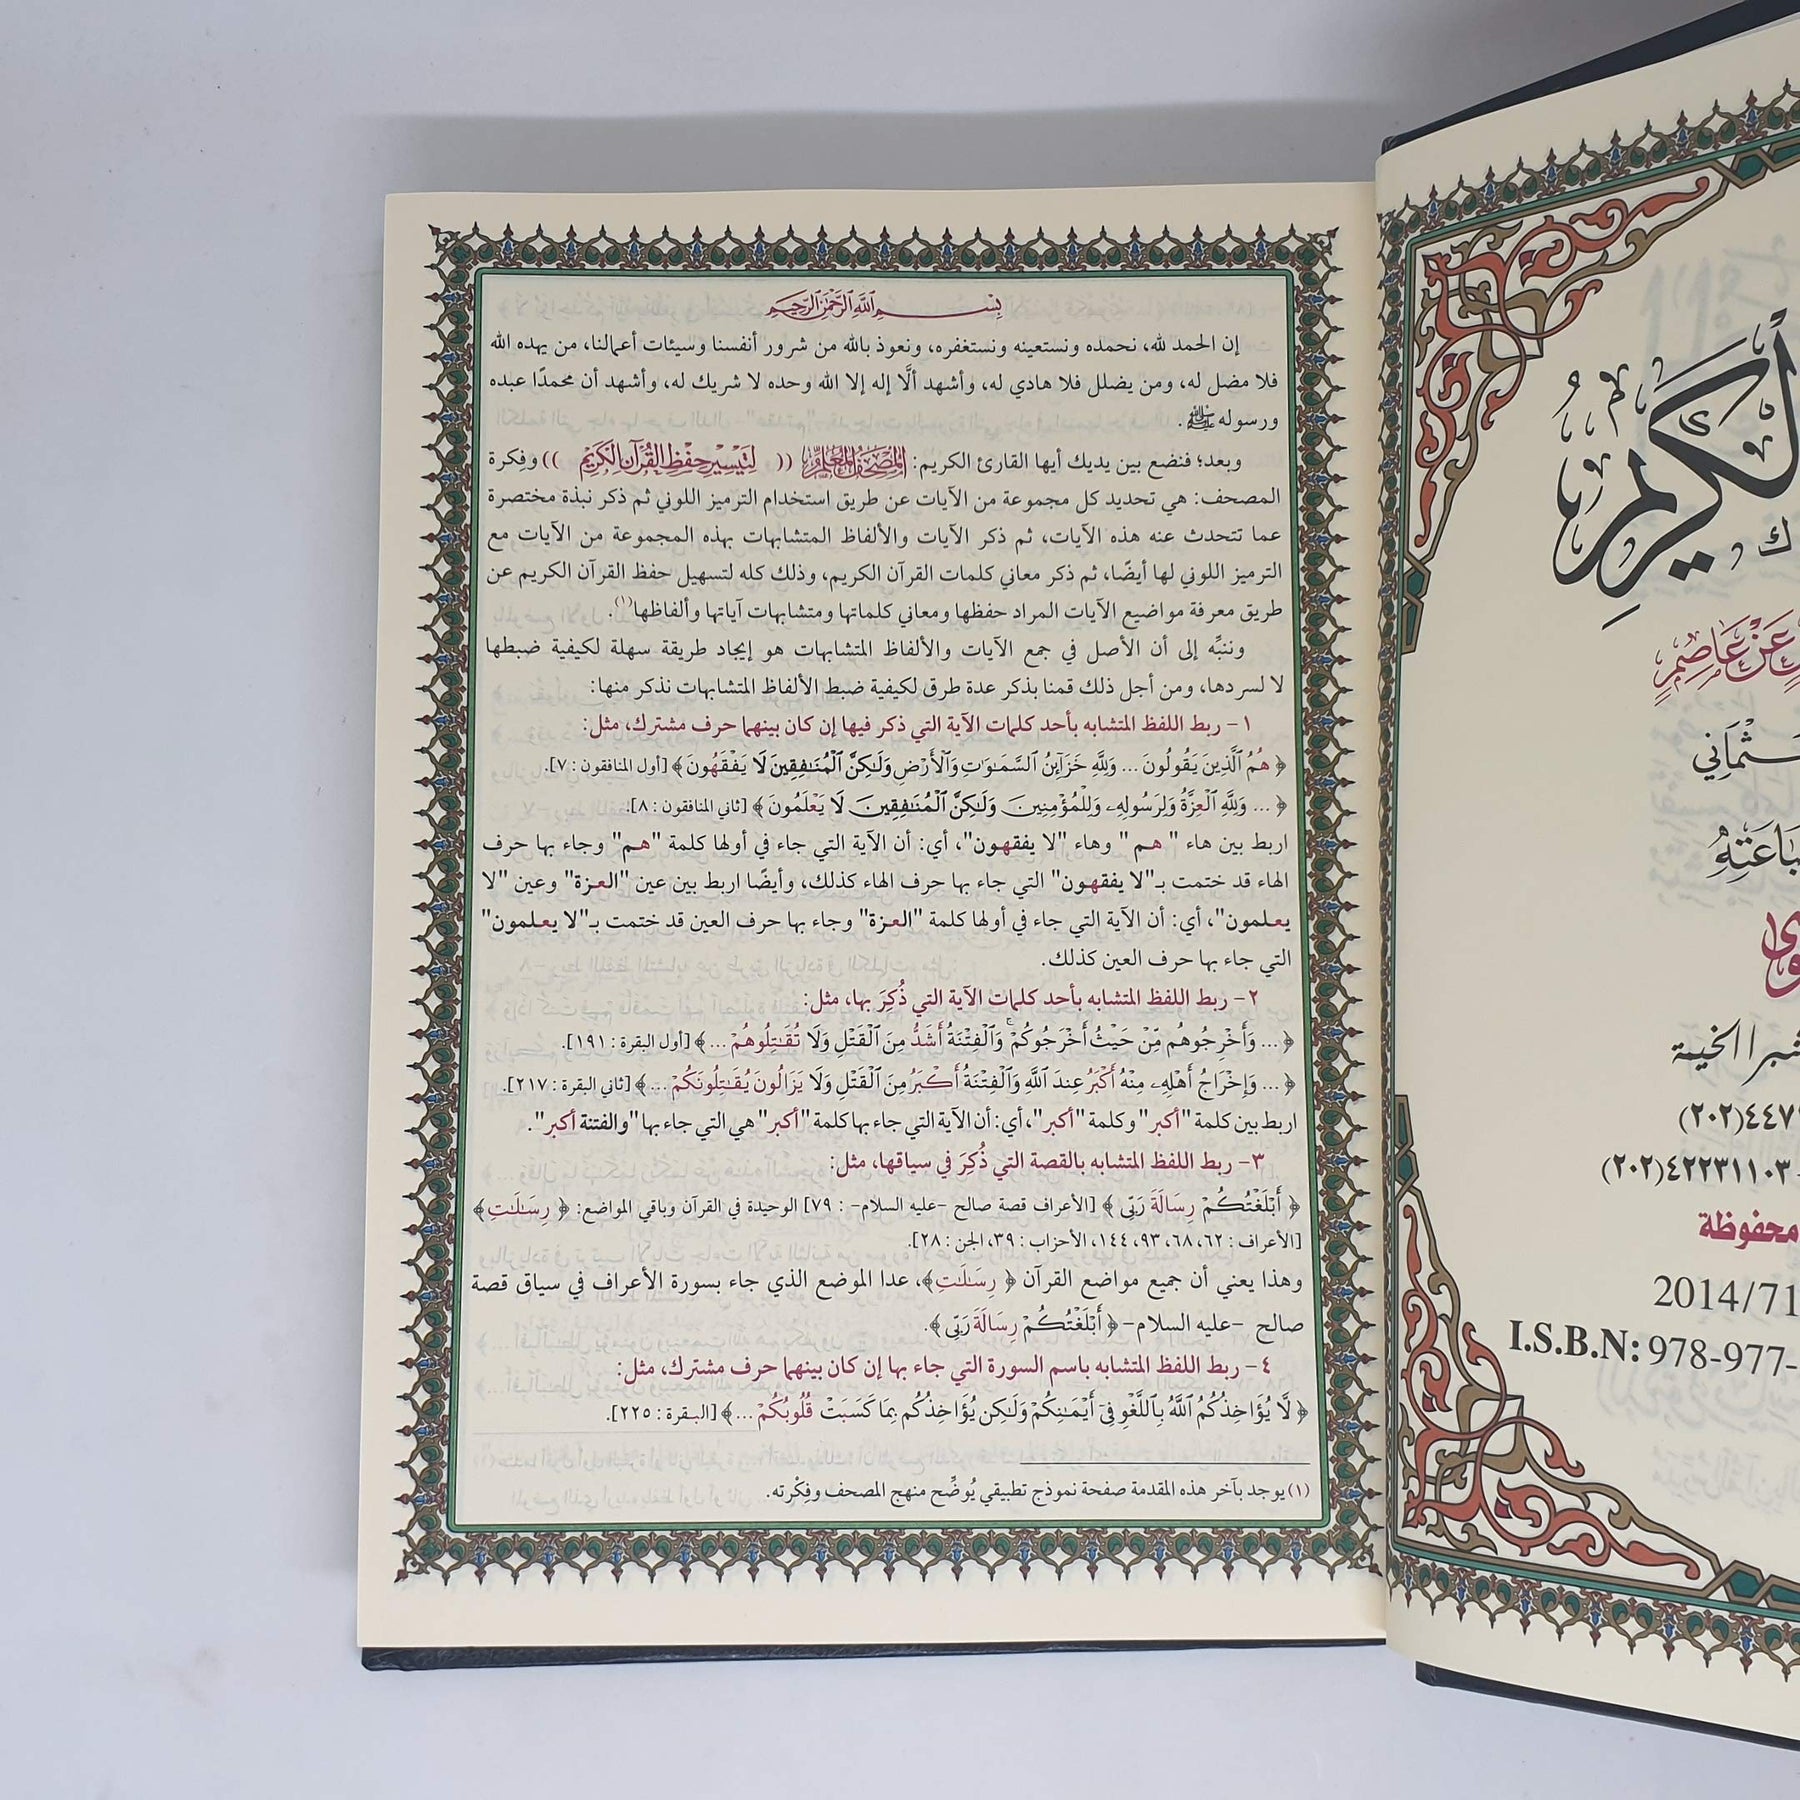 بِسْمِ ٱللَّهِ ٱلرَّحْمَٰنِ ٱلرَّحِيمِ
إن الحمد لله، نحمده ونستعينه ونستغفره، ونعوذ بالله من شرور أنفسنا وسيئات أعمالنا، من يهده الله
فلا مضل له، ومن يضلل فلا هادي له، وأشهد ألَّا إله إلا الله وحده لا شريك له، وأشهد أن محمدًا عبده
ورسوله ﷺ.
وبعد؛ فنضع بين يديك أيها القارئ الكريم: المصحف المعلم ((لتيسير حفظ القرآن الكريم)) وفِكرة
المصحف: هي تحديد كل مجموعة من الآيات عن طريق استخدام الترميز اللوني ثم ذكر نبذة مختصرة
عما تتحدث عنه هذه الآيات، ثم ذكر الآيات والألفاظ المتشابهات بهذه المجموعة من الآيات مع
الترميز اللوني لها أيضًا، ثم ذكر معاني كلمات القرآن الكريم، وذلك كله لتسهيل حفظ القرآن الكريم عن
طريق معرفة مواضيع الآيات المراد حفظها ومعاني كلماتها ومتشابهات آياتها وألفاظها(١).
وننبِّه إلى أن الأصل في جمع الآيات والألفاظ المتشابهات هو إيجاد طريقة سهلة لكيفية ضبطها
لا لسردها، ومن أجل ذلك قمنا بذكر عدة طرق لكيفية ضبط الألفاظ المتشابهات نذكر منها:
١- ربط اللفظ المتشابه بأحد كلمات الآية التي ذكر فيها إن كان بينهما حرف مشترك، مثل:
﴿هُمُ ٱلَّذِينَ يَقُولُونَ ... وَلِلَّهِ خَزَآئِنُ ٱلسَّمَٰوَٰتِ وَٱلْأَرْضِ وَلَٰكِنَّ ٱلْمُنَٰفِقِينَ لَا يَفْقَهُونَ﴾ [أول المنافقون : ٧].
﴿... وَلِلَّهِ ٱلْعِزَّةُ وَلِرَسُولِهِۦ وَلِلْمُؤْمِنِينَ وَلَٰكِنَّ ٱلْمُنَٰفِقِينَ لَا يَعْلَمُونَ﴾ [ثاني المنافقون : ٨].
اربط بين هاء "هـم" وهاء "لا يفقهون"، أي: أن الآية التي جاء في أولها كلمة "هم" وجاء بها حرف
الهاء قد ختمت بـ"لا يفقهون" التي جاء بها حرف الهاء كذلك، وأيضًا اربط بين عين "العزة" وعين "لا
يعلمون"، أي: أن الآية التي جاء في أولها كلمة "العزة" وجاء بها حرف العين قد ختمت بـ"لا يعلمون"
التي جاء بها حرف العين كذلك.
٢- ربط اللفظ المتشابه بأحد كلمات الآية التي ذُكِرَ بها، مثل:
﴿... وَأَخْرِجُوهُم مِّنْ حَيْثُ أَخْرَجُوكُمْ ۚ وَٱلْفِتْنَةُ أَشَدُّ مِنَ ٱلْقَتْلِ وَلَا تُقَٰتِلُوهُمْ ...﴾ [أول البقرة : ١٩١].
﴿... وَإِخْرَاجُ أَهْلِهِۦ مِنْهُ أَكْبَرُ عِندَ ٱللَّهِ وَٱلْفِتْنَةُ أَكْبَرُ مِنَ ٱلْقَتْلِ وَلَا يَزَالُونَ يُقَٰتِلُونَكُمْ ...﴾ [ثاني البقرة : ٢١٧].
اربط بين كلمة "أكبر" وكلمة "أكبر"، أي: أن الآية التي جاء بها كلمة "أكبر" هي التي جاء بها "والفتنة أكبر".
٣- ربط اللفظ المتشابه بالقصة التي ذُكِرَ في سياقها، مثل:
﴿أَبْلَغْتُكُمْ رِسَالَةَ رَبِّى﴾ [الأعراف قصة صالح -عليه السلام- : ٧٩] الوحيدة في القرآن وباقي المواضع: ﴿رِسَٰلَٰتِ﴾
[الأعراف : ٦٢، ٦٨، ٩٣، ١٤٤، الأحزاب : ٣٩، الجن : ٢٨].
وهذا يعني أن جميع مواضع القرآن ﴿رِسَٰلَٰتِ﴾، عدا الموضع الذي جاء بسورة الأعراف في سياق قصة
صالح -عليه السلام- ﴿أَبْلَغْتُكُمْ رِسَالَةَ رَبِّى﴾.
٤- ربط اللفظ المتشابه باسم السورة التي جاء بها إن كان بينهما حرف مشترك، مثل:
﴿لَّا يُؤَاخِذُكُمُ ٱللَّهُ بِٱللَّغْوِ فِىٓ أَيْمَٰنِكُمْ وَلَٰكِن يُؤَاخِذُكُم بِمَا كَسَبَتْ قُلُوبُكُمْ ...﴾ [البقرة : ٢٢٥].
(١) يوجد بآخر هذه المقدمة صفحة نموذج تطبيقي يُوضِّح منهج المصحف وفِكْرته.
الكريم
عن عاصم
شبرا الخيمة
(٢٠٢)٤٤٧
(٢٠٢)٤٢٢٣١١٠٣
محفوظة
2014/71
I.S.B.N: 978-977-